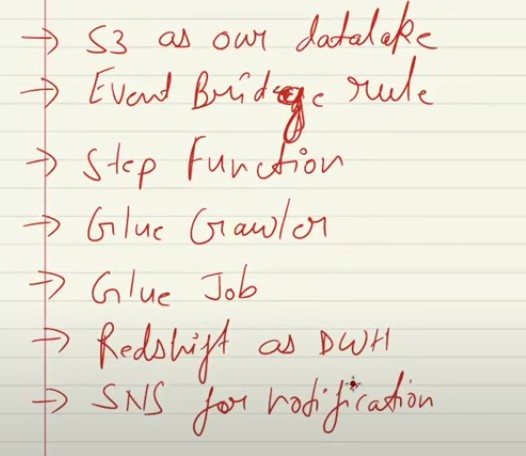 → S3 as our datalake
→ Event Bridge rule
→ Step Function
→ Glue Crawler
→ Glue Job
→ Redshift as DWH
→ SNS for notification